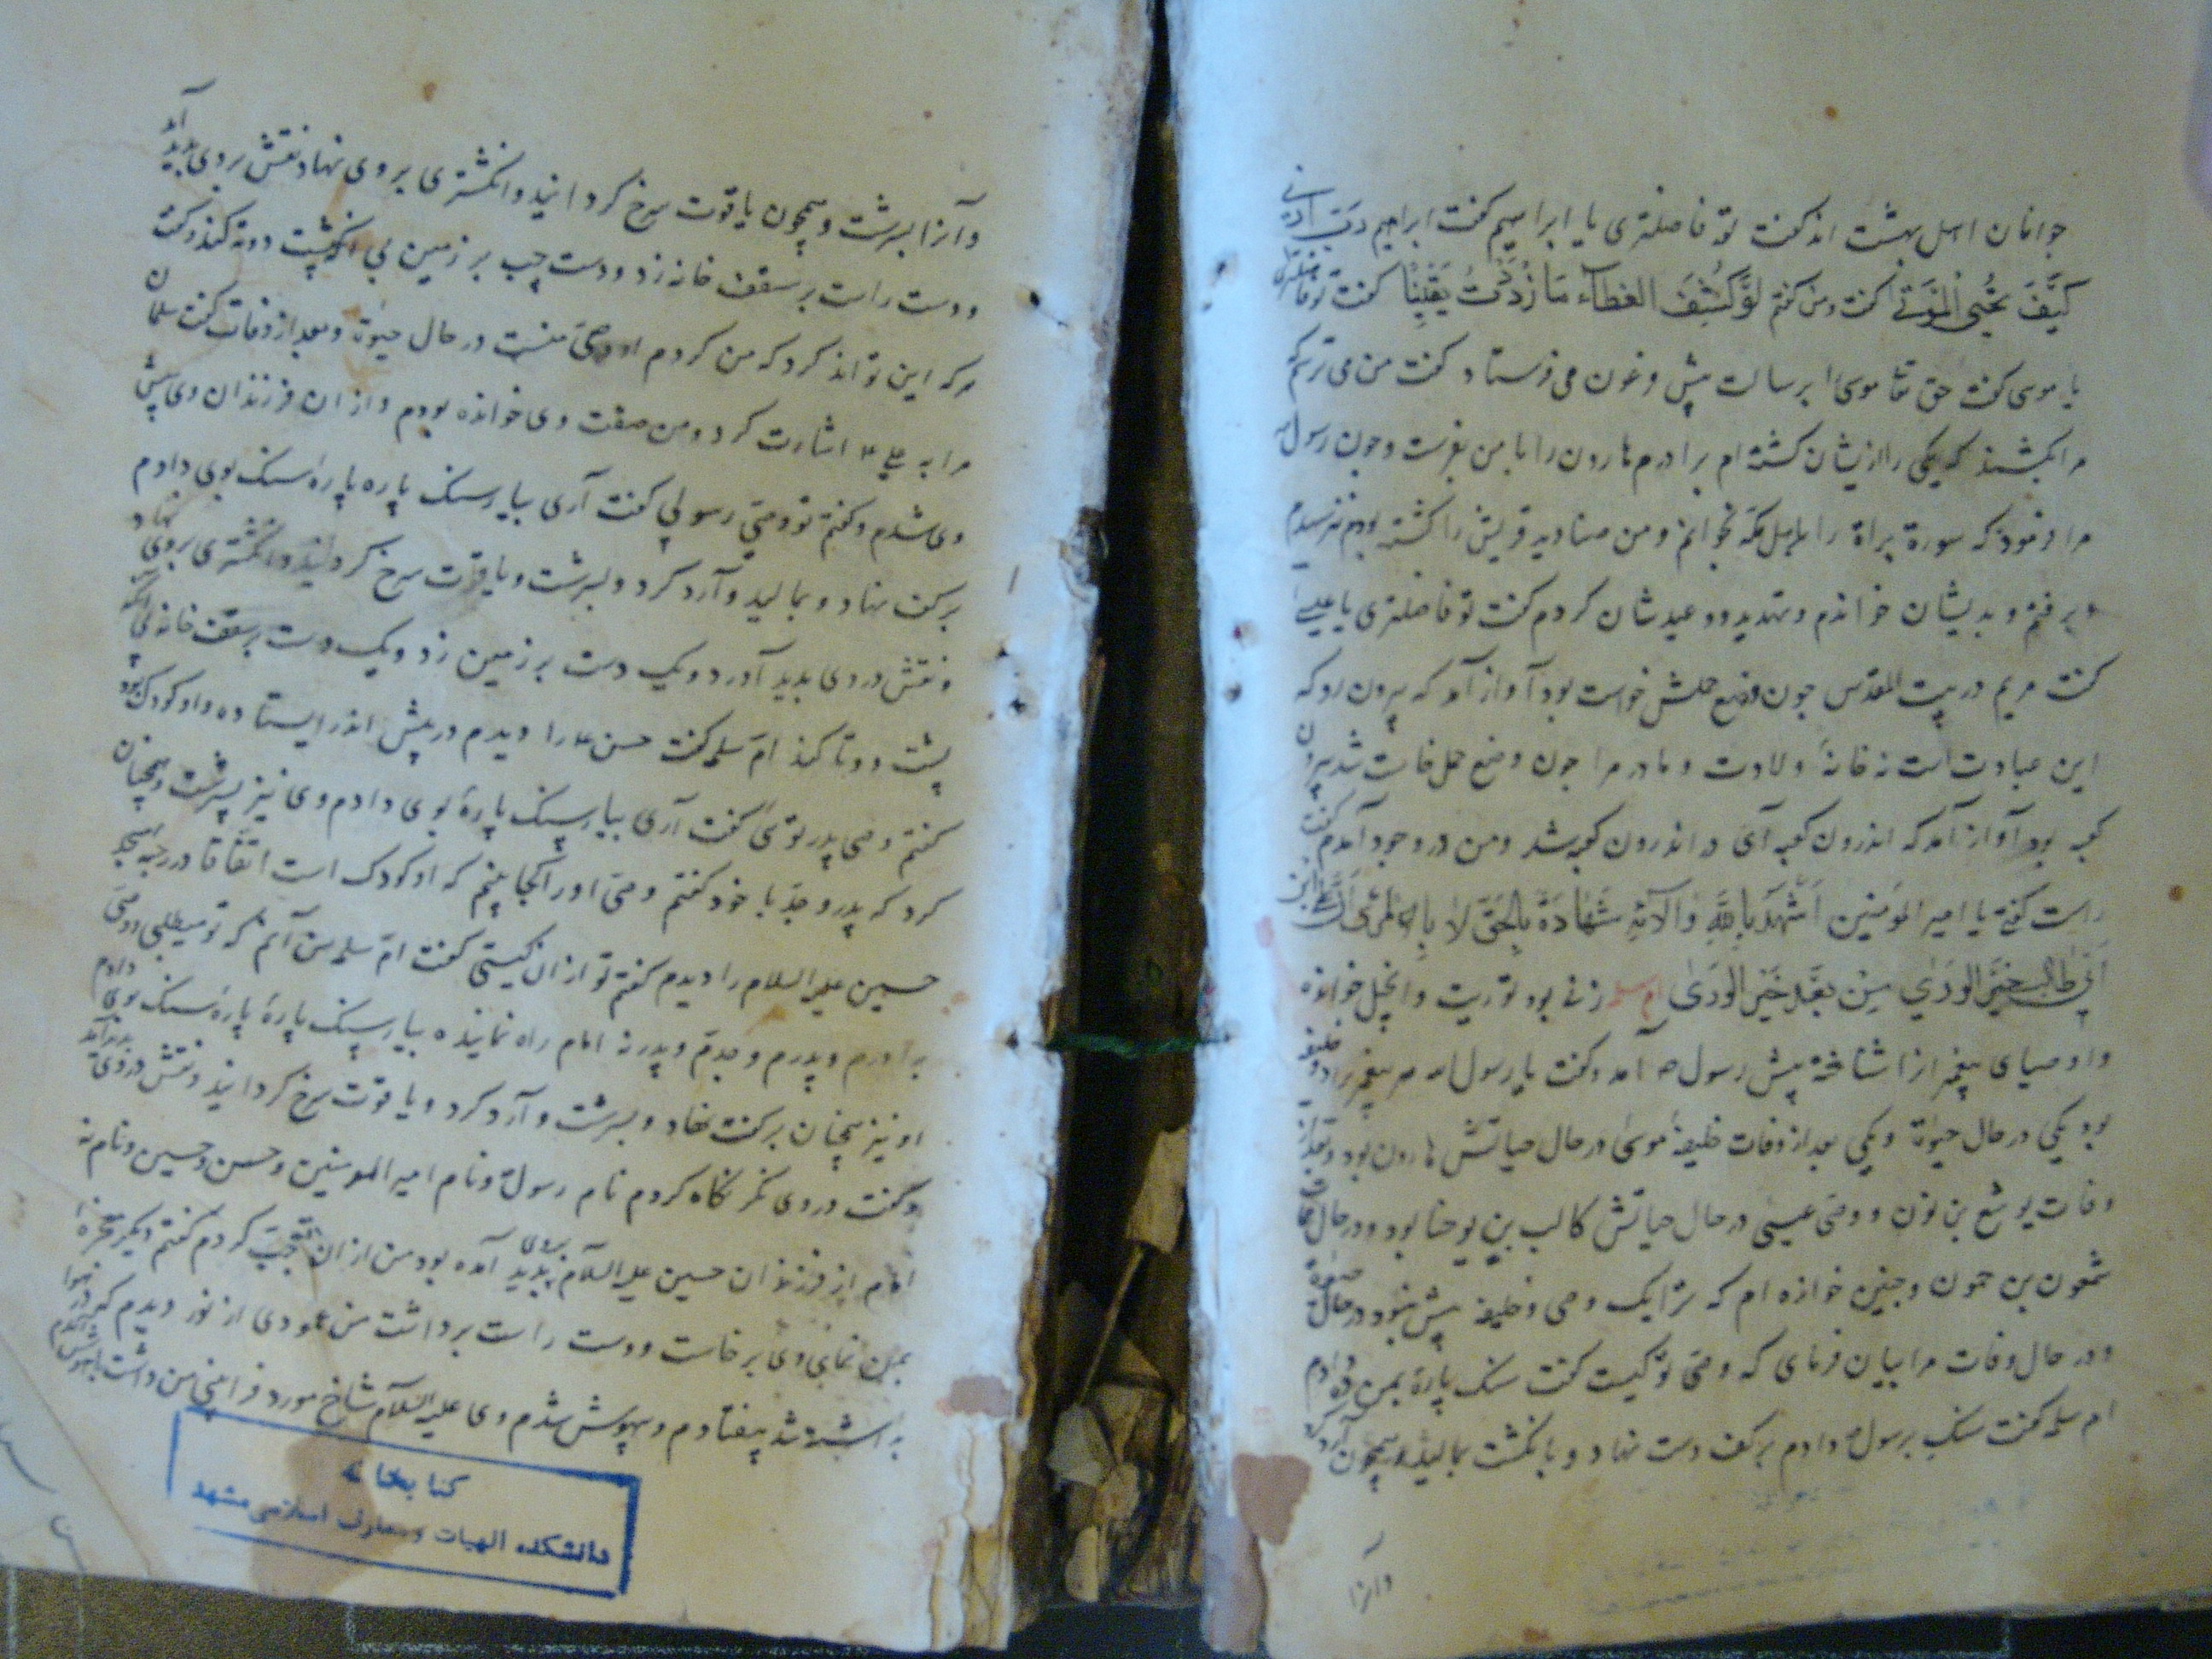 جوانان اهل بهشت اند گفت تو فاضلتری یا ابراهیم گفت ابراهیم رَبِّ اَرِنی
کَیفَ تُحیِی المَوتی گفت و من گفتم لَو کُشِفَ الغِطآء مَا ازْدَدْتُ یَقِینًا گفت تو فاضلتری
یا موسی گفت حق تعا موسی را برسالت پیش فرعون می فرستاد گفت من می ترسم که
مرا بکشند که یکی را ازیشان کشته ام برادرم هارون را با من بفرست و چون رسول
مرا فرمود که سورة براة را باهل مکه خوانم و من صنادید قریش را کشته بودم نترسیدم
و برفتم و بدیشان خواندم و تهدید و وعید شان کردم گفت تو فاضلتری یا عیسی
گفت مریم در بیت المقدس چون وضع حملش خواست بود آواز آمد که بیرون رو که
این عبادت است نه خانهٔ ولادت و مادر مرا چون وضع حمل خاست شد بیرون
کعبه بود آواز آمد که اندرون کعبه آی در اندرون کعبه شد و من در وجود آمدم گفت
راست گفتی یا امیر المؤمنین اَشْهَدُ بِاللهِ وَ الآئِهِ شَهَادَةً بِالحَقِّ لا بِالمِرَی اَنَّ عَلِیَّ ابْنَ
اَبِی طَالِبٍ خَیرُ الوَرَی مِن بَعدِ خَیرِ الوَرَی ام سلمه زنی بود توریت و انجیل خوانده
و اوصیای پیغمبرانرا شناخته پیش رسول ص آمد و گفت یا رسول الله هر پیغمبر را دو خلیفه
بود یکی در حال حیوة و یکی بعد از وفات خلیفهٔ موسی در حال حیاتش هارون بود و بعد از
وفات یوشع بن نون و وصی عیسی در حال حیاتش کالب بن یوحنا بود و در حال وفات
شمعون بن حمون و چنین خوانده ام که ترا یک وصی و خلیفه بیش نبود در حال حیوة
و در حال وفات مرا بیان فرمای که وصی تو کیست گفت سنک پارهٔ بمن ده دادم
ام سلمه گفت سنک برسول دادم بر کف دست نهاد و بانگشت بمالید و همچون آرد کرد
و آنرا
و آنرا بسرشت و همچون یاقوت سرخ گردانید و انگشتری بر وی نهاد نقش بر وی پدید آمد
و دست راست بر سقف خانه زد و دست چپ بر زمین بی آنکه پشت دوتا کند و گفت
هر که این تواند کرد که من کردم او وصی منست در حال حیوة و بعد از وفات گفت سلمان
مرا به علی ع اشارت کرد و من صفت وی خوانده بودم و از ان فرزندان وی پیش
وی شدم و گفتم تو وصی رسولی گفت آری بیار سنک پاره پارهٔ سنک بوی دادم
بر کف نهاد و بمالید و آرد کرد و بسرشت و یاقوت سرخ گردانید و انگشتری بر وی نهاد
و نقش در وی پدید آورد و یک دست بر زمین زد و یک دست بر سقف خانه بی آنکه
پشت دوتا کند ام سلمه گفت حسن ع را دیدم در پیش اندر ایستاده و او کودک بود
گفتم وصی پدر توئی گفت آری بیار سنک پارهٔ بوی دادم وی نیز بسرشت و همچنان
کرد که پدر و جد با خود گفتم وصی او را کجا بینم که او کودک است اتفاقا در رحبه مسجد
حسین علیه السلام را دیدم گفتم تو از ان کیستی گفت ام سلمه من آنم که تو میطلبی وصی
برادرم و پدرم و جدم و پدر نه امام راه نماینده بیار سنک پارهٔ پارهٔ سنک بوی دادم
او نیز همچنان بر کف نهاد و بسرشت و آرد کرد و یاقوت سرخ گردانید و نقش در وی پدید آمد
و گفت در وی نگر نگاه کردم نام رسول و نام امیر المومنین و حسن و حسین و نام نه
امام از فرزندان حسین علیه السلام بروی پدید آمده بود من از ان تعجب کردم گفتم دیگر معجزه
بمن نمای وی برخاست و دست راست برداشت من عمودی از نور دیدم که در هوا
شد بیفتادم و بیهوش شدم وی علیه السلام شاخ مورد فرا بینی من داشت باهوش آمدم
کتابخانه
دانشکده الهیات و معارف اسلامی مشهد